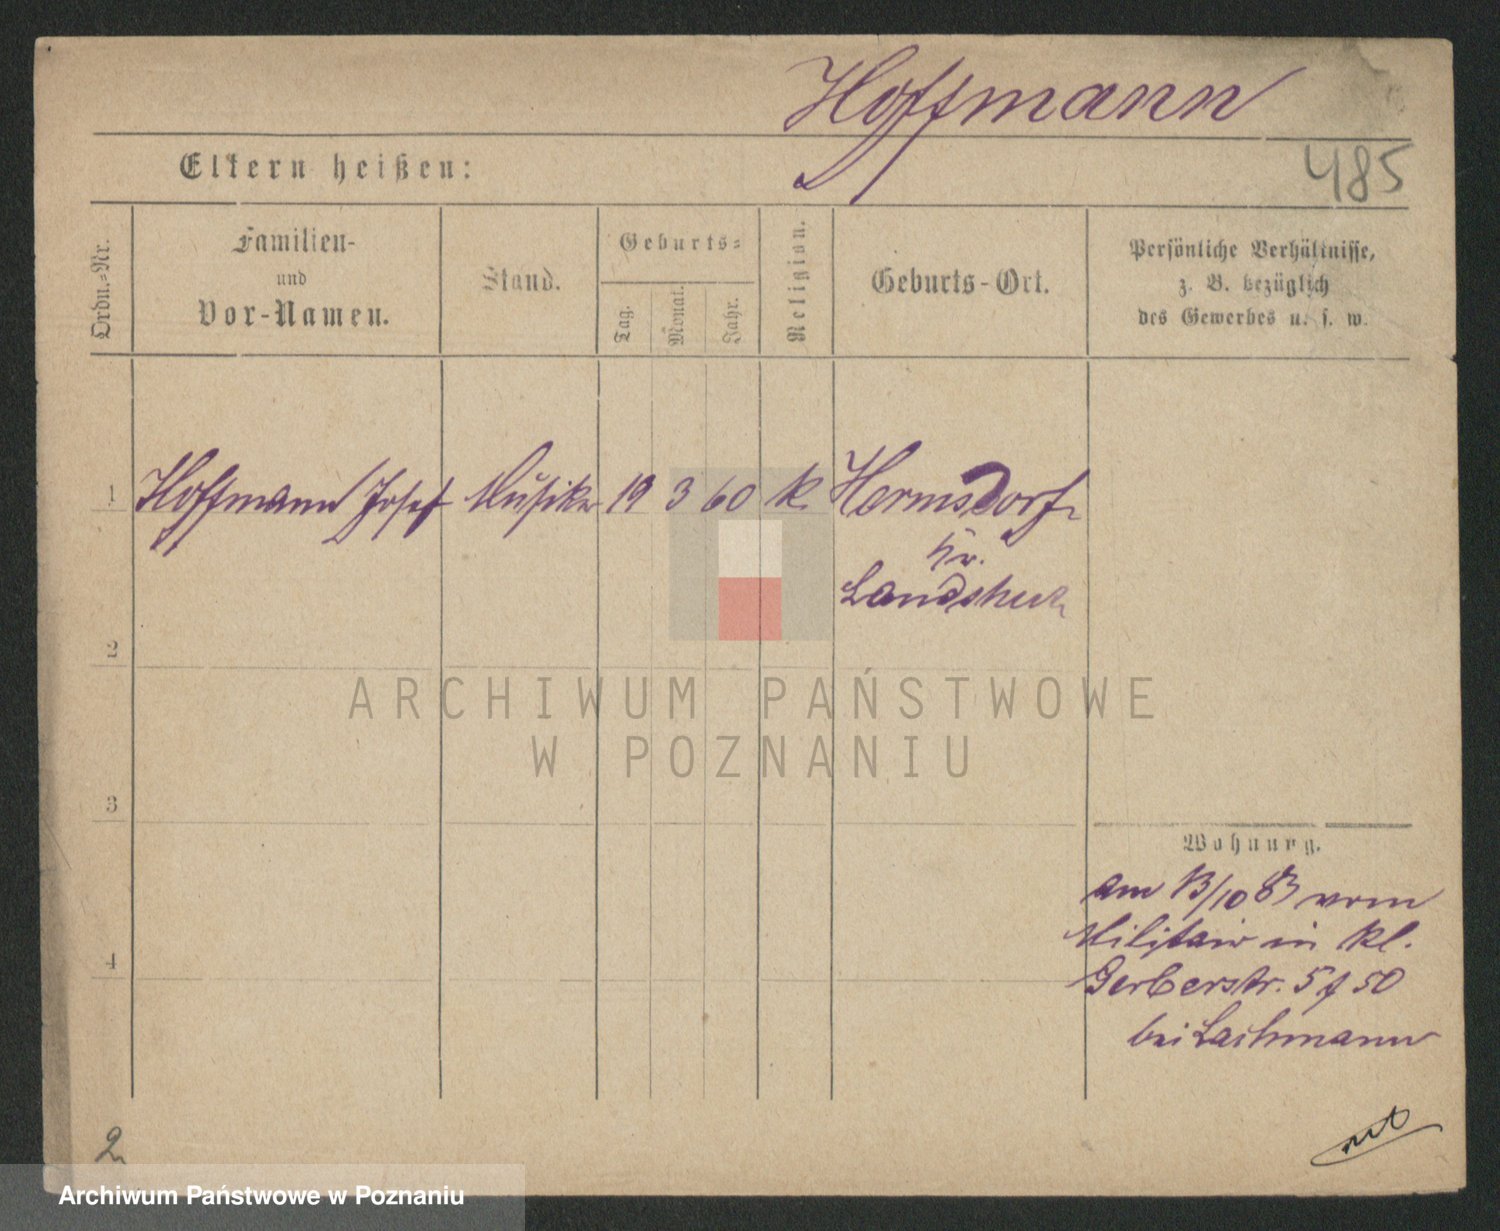 Hoffmann
485
Eltern heißen:
Ordn.-Nr.
Familien-
und
Vor-Namen.
Stand.
Geburts-
Tag.
Monat.
Jahr.
Religion.
Geburts-Ort.
Persönliche Verhältnisse,
z. B. bezüglich
des Gewerbes u. s. w.
1 Hoffmann Josef Musiker 19 3 60 k. Hermsdorf
Kr.
Landshut
2
ARCHIWUM PAŃSTWOWE
W POZNANIU
3
Wohnung.
am 13/10 83 vom
Militair in kl.
4
Gerberstr. 5 f 50
bei Lachmann
2
Archiwum Państwowe w Poznaniu